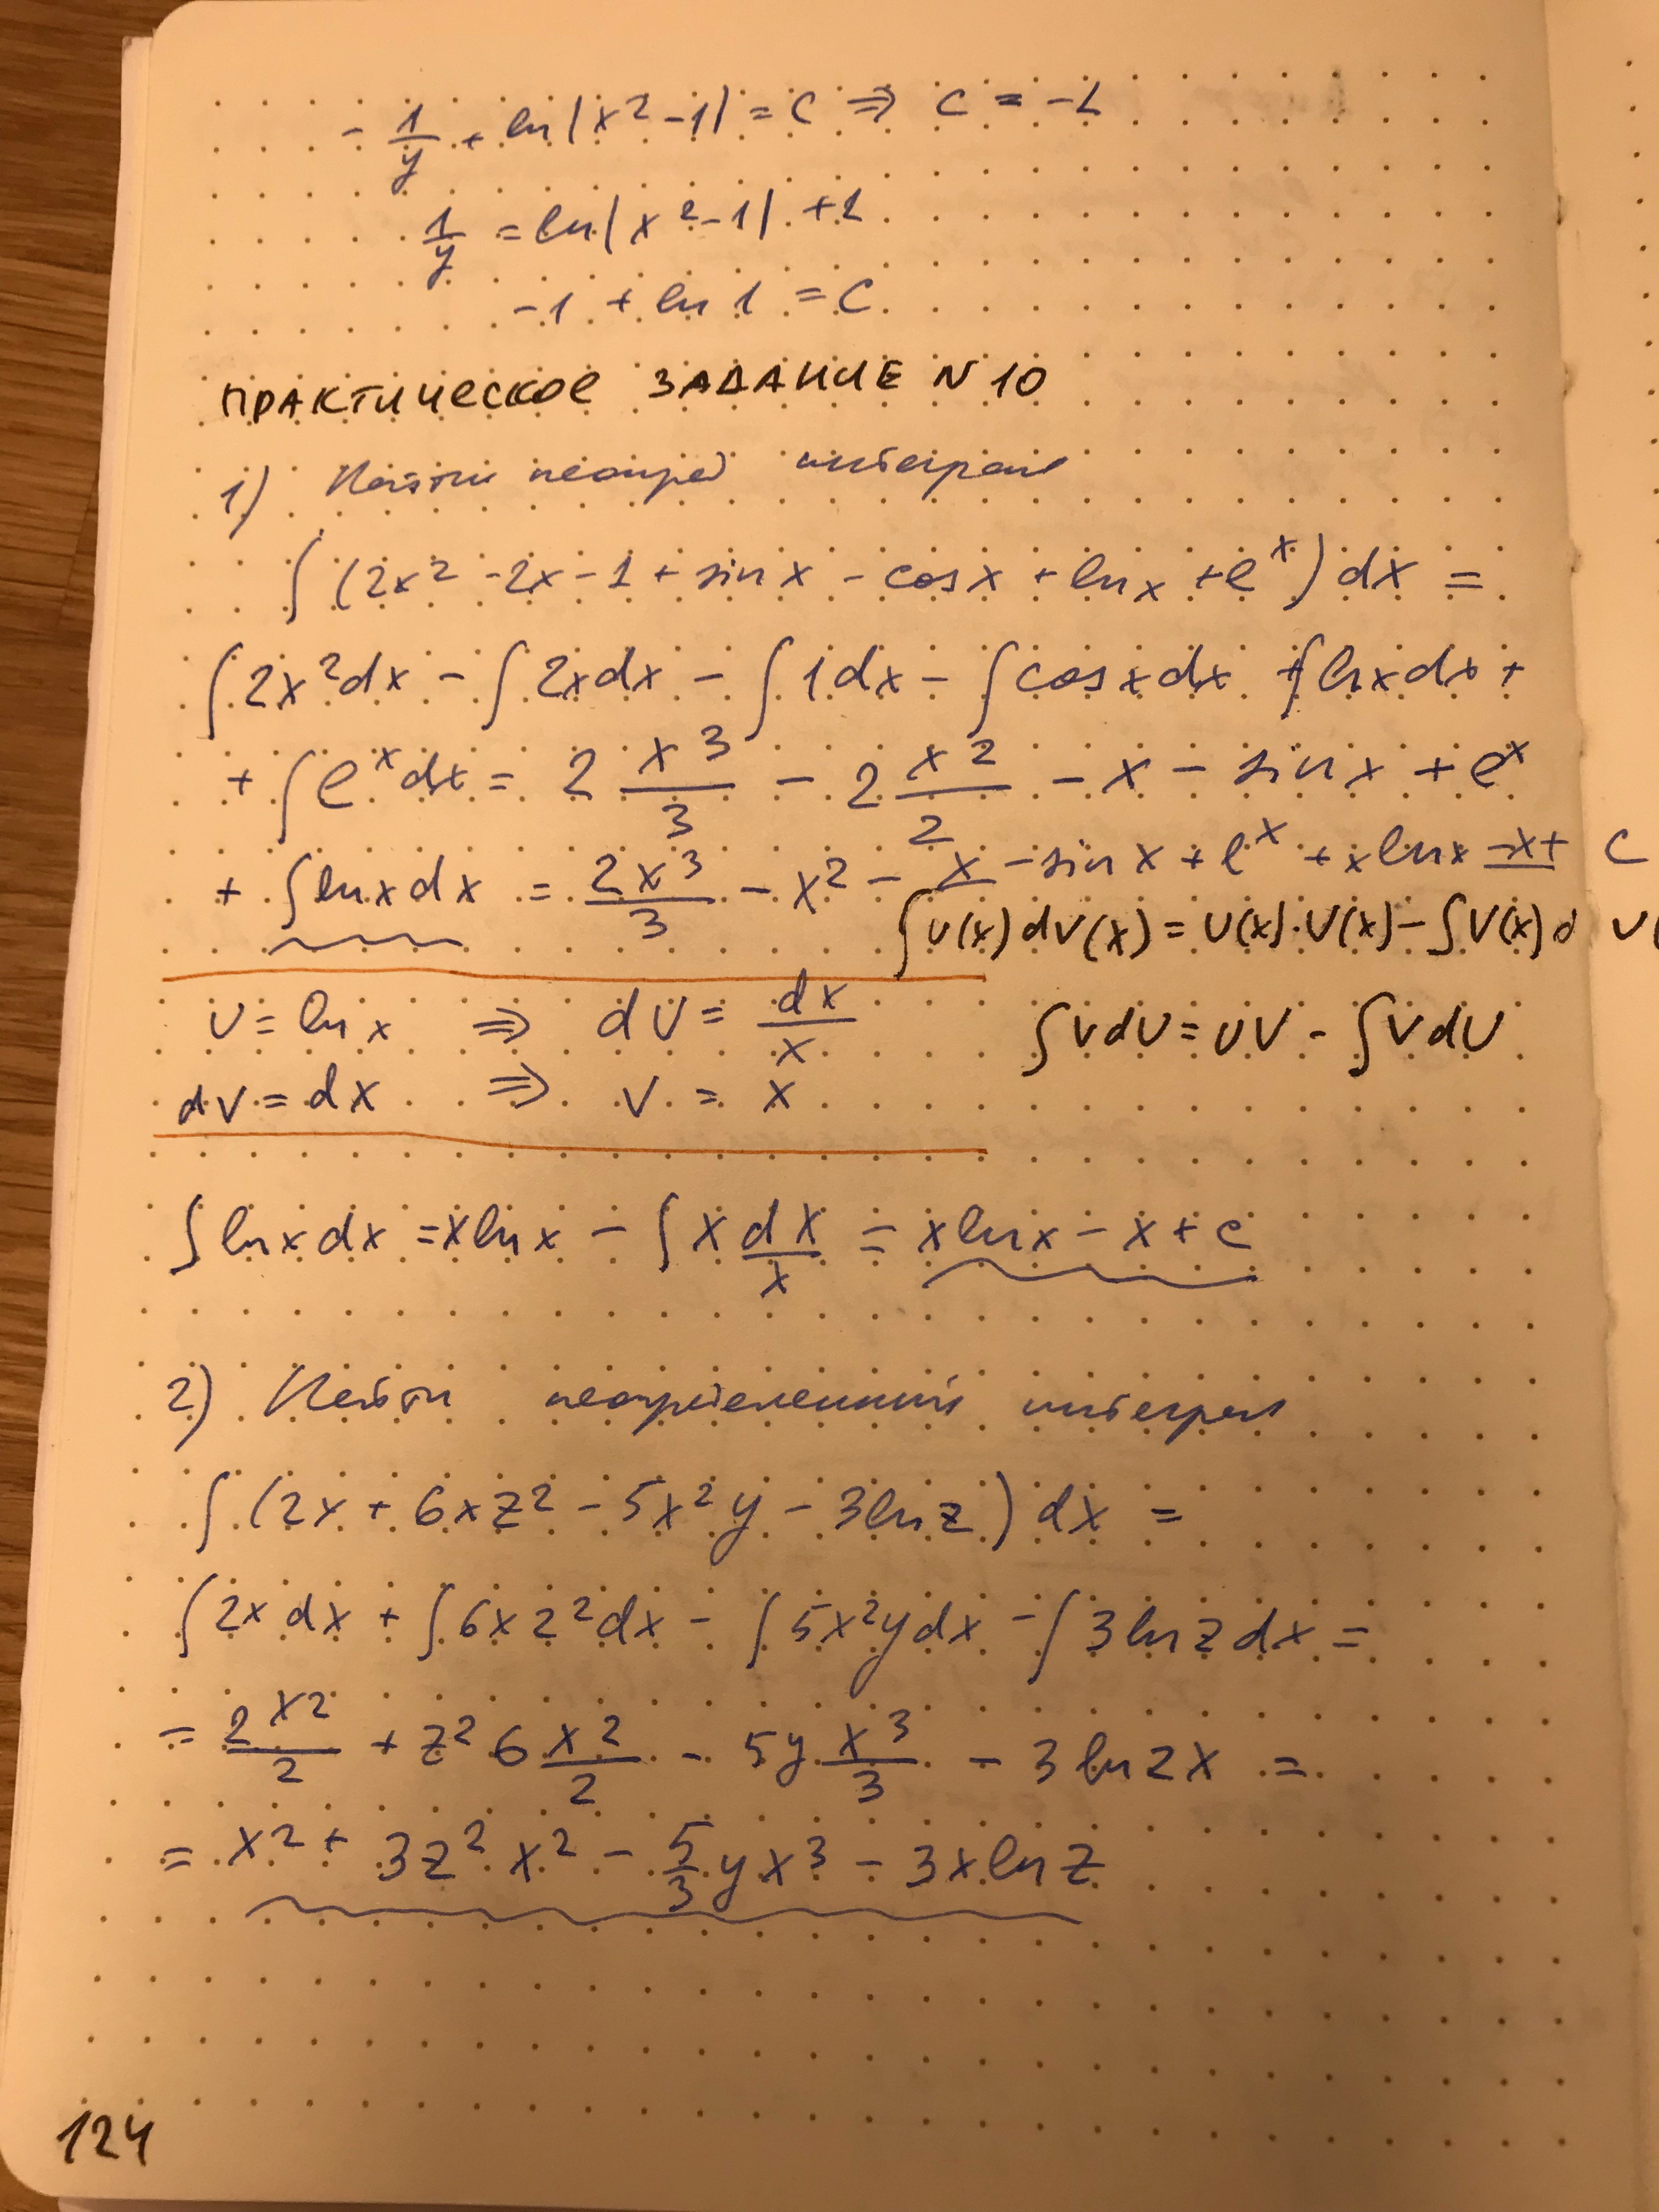 - 1/y + ln|x² - 1| = C ⇒ C = -1
1/y = ln|x² - 1| + 1
-1 + ln 1 = C
ПРАКТИЧЕСКОЕ ЗАДАНИЕ N 10
1) Найти неопред интеграл
∫(2x² - 2x - 1 + sin x - cos x + ln x + e^x) dx =
∫2x²dx - ∫2xdx - ∫1dx - ∫cos x dx + ∫ln x dx +
+ ∫e^x dx = 2 x³/3 - 2 x²/2 - x - sin x + e^x
+ ∫ln x dx = 2x³/3 - x² - x - sin x + e^x + x ln x - x + C
∫U(x) dV(x) = U(x)·V(x) - ∫V(x) d U(
U = ln x ⇒ dU = dx/x
∫VdU = UV - ∫VdU
dV = dx ⇒ V = x
∫ln x dx = x ln x - ∫x dx/x = x ln x - x + c
2) Найти неопределенный интеграл
∫(2x + 6xz² - 5x²y - 3ln z) dx =
∫2x dx + ∫6xz²dx - ∫5x²ydx - ∫3ln z dx =
= 2 x²/2 + z² 6 x²/2 - 5y x³/3 - 3 ln z x =
= x² + 3z²x² - 5/3 yx³ - 3x ln z
124